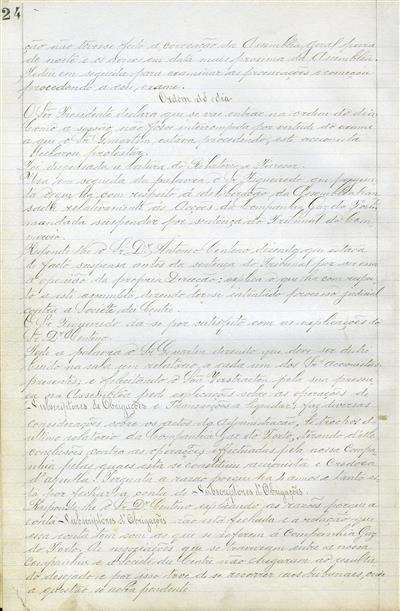 24
ção não tivesse feito a convocação da Assemblea Geral para
em data mais proxima da Assemblea.
em seguida para examinar as procurações e começou
procedendo a este exame.
Ordem do dia
O Snr Presidente declara que se vae entrar na ordem do dia
Como a sessão não fosse interrompida por virtude do exame
a que o Sr Guartin estava procedendo, este accionista
declarou protestar.
Foi dispensada a leitura do Relatorio e Parecer.
Usa em seguida da palavra o Sr Figueiredo que pergun
ta com respeito á deliberação da Assemblea
relativamente ás Acções da Companhia Gaz do Porto
mandada suspender por sentença do Tribunal do Com
mercio.
Responde-lhe o Sr Dr Antonio Centeno dizendo que estava
de facto suspensa antes da sentença do Tribunal por ser essa
a opinião da propria Direcção; explica o que ha com respei
to a este assumpto, dizendo ter-se intentado processo judicial
contra a Société du Centre.
O Sr Figueiredo dá-se por satisfeito com as explicações do
Sr Dr Centeno.
Pede a palavra o Sr Guartin dizendo que deve ser distri
buido na sala um relatorio a cada um dos Srs accionistas
presentes, e
na Assemblea pede explicações sobre as operações de
Subscriptores de Obrigações e Transacções a liquidar; faz diversas
considerações sobre os actos da Administração, lê trechos do
ultimo relatorio da Companhia Gaz do Porto, tirando d'elle
conclusões contra as operações effectuadas pela nossa Compa
nhia pelas quaes esta se constituiu accionista e credora
d'aquella. Pergunta a razão porque ha 3 annos e tanto es
tá por fechar a conta de Subscriptores d'Obrigações.
Responde-lhe o Sr Dr Centeno explicando as razões porque a
conta Subscriptores d'Obrigações não está fechada e a relação que
essa conta tem com as que se referem á Companhia Gaz
do Porto. As negociações que se travaram entre a nossa
Companhia e a Société du Centre não chegaram ao resultado
desejado e por isso teve de se recorrer aos tribunaes, onde
a questão se acha pendente.